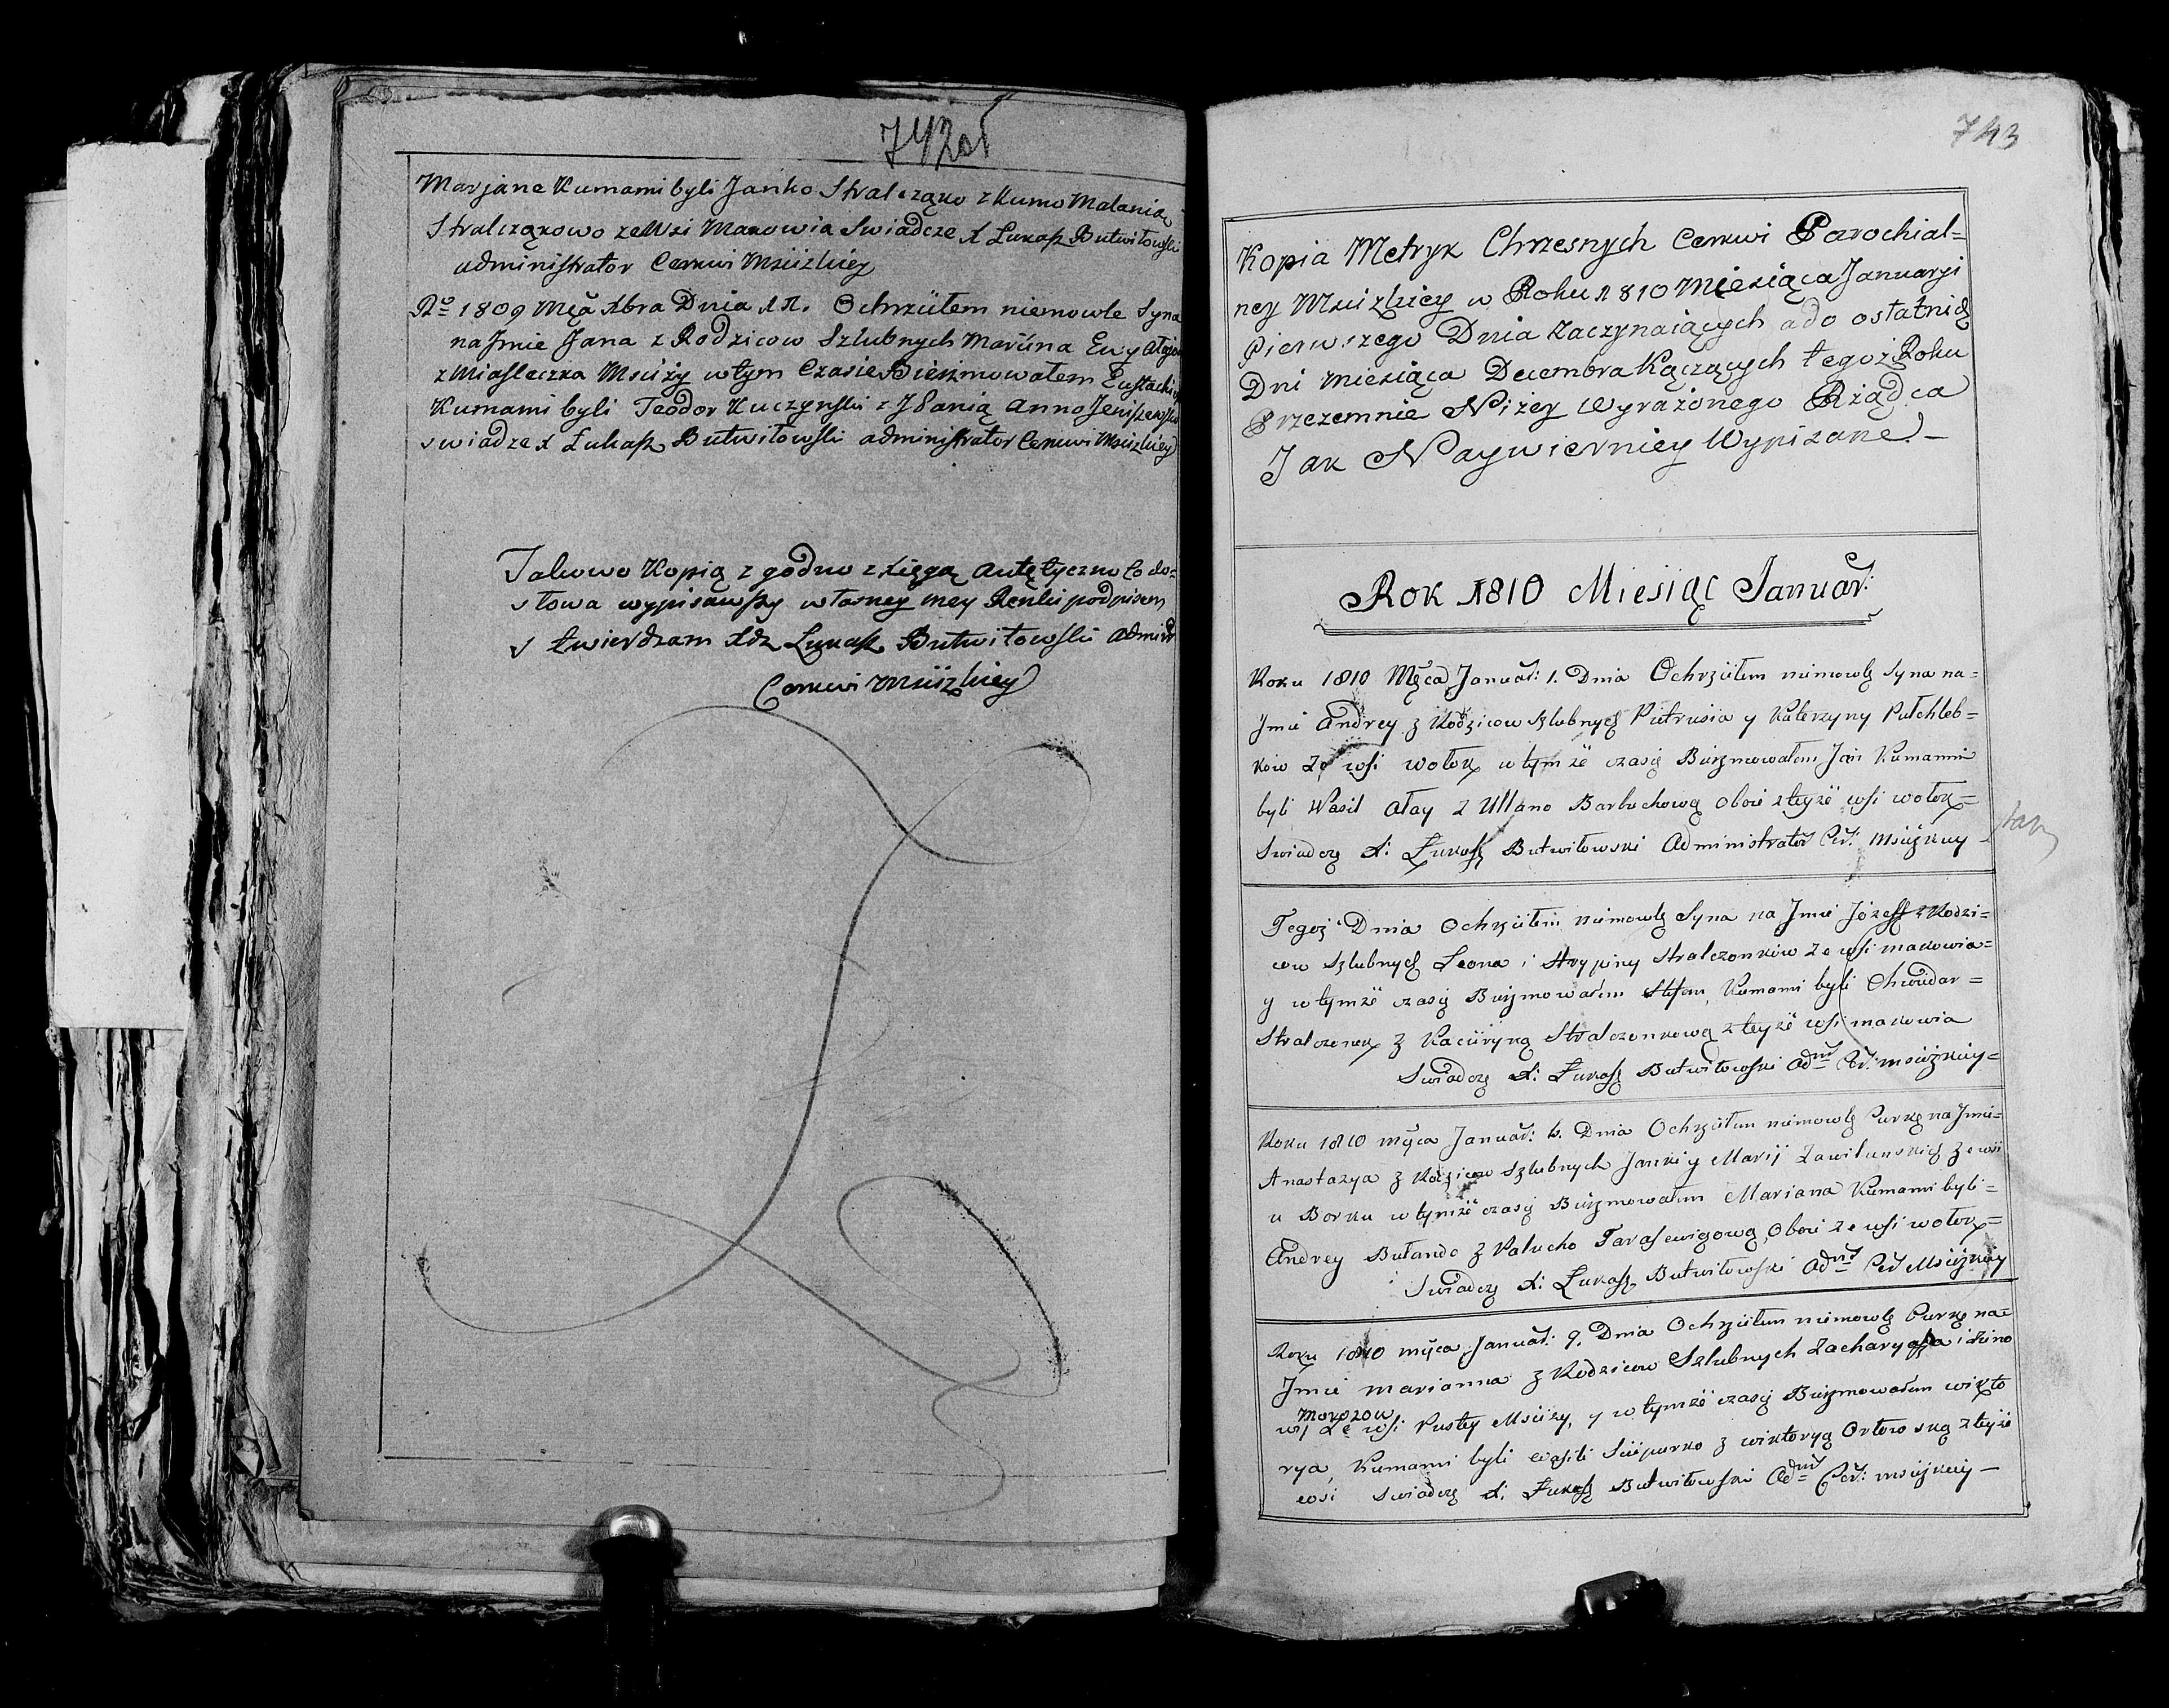 742об
Marjane Kumami byli Janko Stralcząko z Kumo Malanią
Stralcząkowo ze Wsi Makowia Swiadcze X Łukasz Butwiłowski
administrator Cerkwi Msciżkiey
Ro 1809 Mca Xbra Dnia Ochrzciłem niemowle Syna
na Jmie Jana z Rodzicow Szlubnych Marcina Ewy
z Miasteczka Msciży w tym Czasie Bierzmowałem Eustachi
Kumami byli Teodor Kuczynski z Jɞanią Anno
swiadze X Łukasz Butwiłowski administrator Cerkwi Msciżkiey
Takowo Kopią zgodno z Xięgą Autętyczno Co do=
słowa wypisawszy własney mey Renki podpisem
stwierdzam Xdz Łukasz Butwiłowski admin
Cerkwi Msciżkiey
743
Kopia Metryk Chrzesnych Cerkwi Parochial=
ney Msciżkiey w Roku 1810 Miesiąca Januaryi
Pierwszego Dnia Zaczynaiących a do ostatnich
Dni Miesiąca Decembra Kączących tegoż Roku
Przezemnie Niżey Wyrażonego Rządca
Jak Naywierniey Wypisane. –
Rok 1810 Miesiąc Januar:
Roku 1810 Męca Januar: 1. Dnia Ochrzciłem niemowlę Syna na=
Jmie Andrey z Rodzicow szlubnych Pietrusia y Katerzyny Putchleb=
kow ze wsi Wołok w tymże czasie Bierzmowałem Jan Kumami
byli Wasil Ałay z Ullano Barbuchową oboie z teyże wsi Wołok=
Swiadczę X: Łukasz Butwiłowski Administrator Cer: Msciżkiey
Tegoż Dnia Ochrzciłem niemowlę Syna na Jmie Józeff z Rodzi=
cow szlubnych Leona i Ahrypiny Stralczonkow ze wsi Makowia=
y w tymże czasie Bierzmowałem Stefan, Kumami byli Chwiedar=
Stralczonek z Kacieryną Stralczonkową z teyże wsi Makowia
Swiadczę X: Łukasz Butwiłowski Admr Cer: Msciżkiey=
Roku 1810 męca Januar: 6. Dnia Ochrzciłem niemowlę Curkę na Jmie=
Anastazya z Rodzicow szlubnych Janki y Maryi Zawilunskich ze wsi
u Borku w tymże czasie Bierzmowałem Mariana Kumami byli=
Andrey Bułando z Palucho Tarasewigową, oboie ze wsi Wołok=
Swiadczę X: Łukasz Butwiłowski Admr Cer Msciżkiey
Roku 1810 męca Januar: 9. Dnia Ochrzciłem niemowlę Curkę na=
Jmie Marianna z Rodzicow Szlubnych Zacharyasza i Zino
Morozow
wj ze wsi Pustey Msciży, y w tymże czasie Bierzmowałem Wikto
rya, Kumami byli Wasili Sciepurko z Wiktoryą Orłowską z teyże
wsi Swiadczę X: Łukasz Butwiłowski Admr Cer: Msciżkiey –